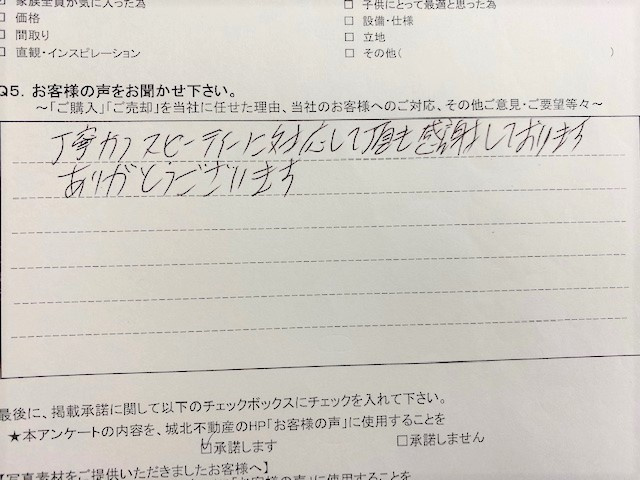 家族全員が気に入った為
□ 子供にとって最適と思った為
□ 価格
□ 設備・仕様
□ 間取り
□ 立地
□ 直観・インスピレーション
□ その他( )
Q5. お客様の声をお聞かせ下さい。
～「ご購入」「ご売却」を当社に任せた理由、当社のお客様へのご対応、その他ご意見・ご要望等々～
丁寧かつスピーディーに対応して頂き感謝しております
ありがとうございます
最後に、掲載承諾に関して以下のチェックボックスにチェックを入れて下さい。
★本アンケートの内容を、城北不動産のHP「お客様の声」に使用することを
☑承諾します
□承諾しません
【写真素材をご提供いただきましたお客様へ】
「お客様の声」に使用することを